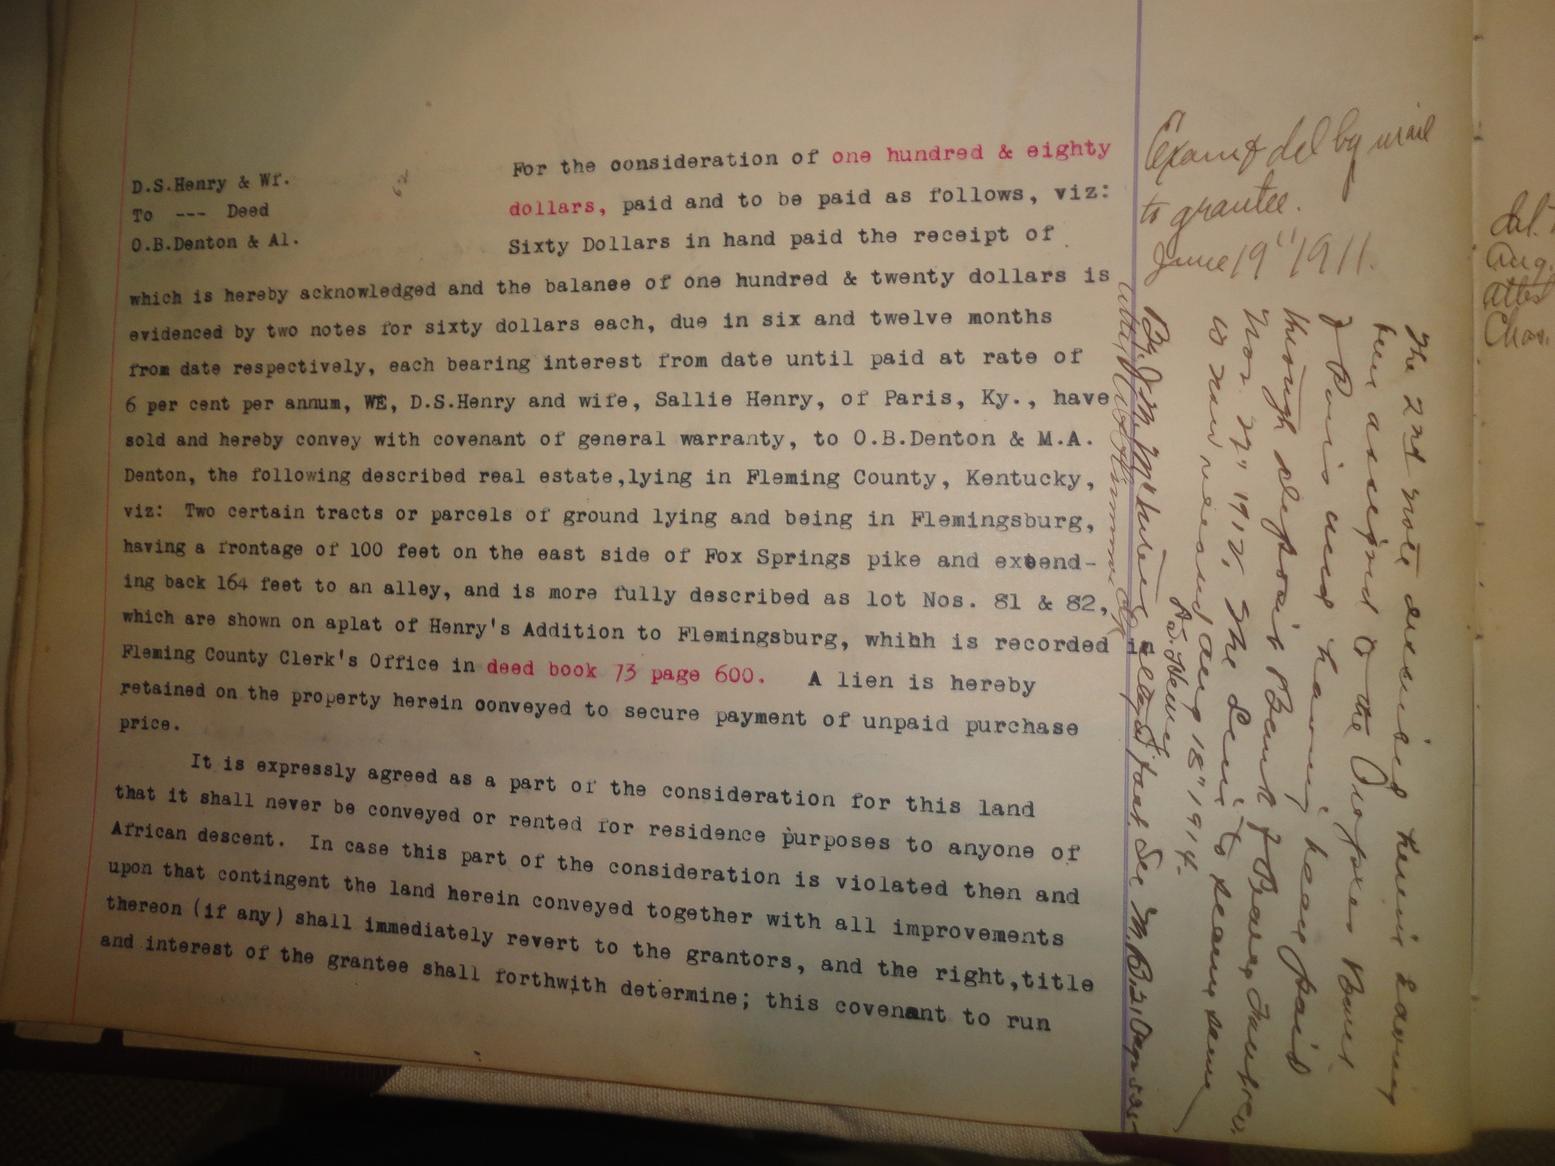 D.S.Henry & Wf.
To --- Deed
O.B.Denton & Al.
For the consideration of one hundred & eighty
dollars, paid and to be paid as follows, viz:
Sixty Dollars in hand paid the receipt of
which is hereby acknowledged and the balanee of one hundred & twenty dollars is
evidenced by two notes for sixty dollars each, due in six and twelve months
from date respectively, each bearing interest from date until paid at rate of
6 per cent per annum, WE, D.S.Henry and wife, Sallie Henry, of Paris, Ky., have
sold and hereby convey with covenant of general warranty, to O.B.Denton & M.A.
Denton, the following described real estate,lying in Fleming County, Kentucky,
viz: Two certain tracts or parcels of ground lying and being in Flemingsburg,
having a frontage of 100 feet on the east side of Fox Springs pike and extend-
ing back 164 feet to an alley, and is more fully described as lot Nos. 81 & 82,
which are shown on aplat of Henry's Addition to Flemingsburg, whihh is recorded in
Fleming County Clerk's Office in deed book 73 page 600. A lien is hereby
retained on the property herein conveyed to secure payment of unpaid purchase
price.
It is expressly agreed as a part of the consideration for this land
that it shall never be conveyed or rented for residence purposes to anyone of
African descent. In case this part of the consideration is violated then and
upon that contingent the land herein conveyed together with all improvements
thereon (if any) shall immediately revert to the grantors, and the right,title
and interest of the grantee shall forthwith determine; this covenant to run
Exam & del by mail
to grantee.
June 19" 1911.
The 2nd note described herein having
been assigned to the Peoples Bank
of Paris and having been paid
through deposit Bank of
Nov. 1912, the lien to secure same
is now released Aug 18" 1914.
D.S. Henry
del.
Aug.
attest
Chas.